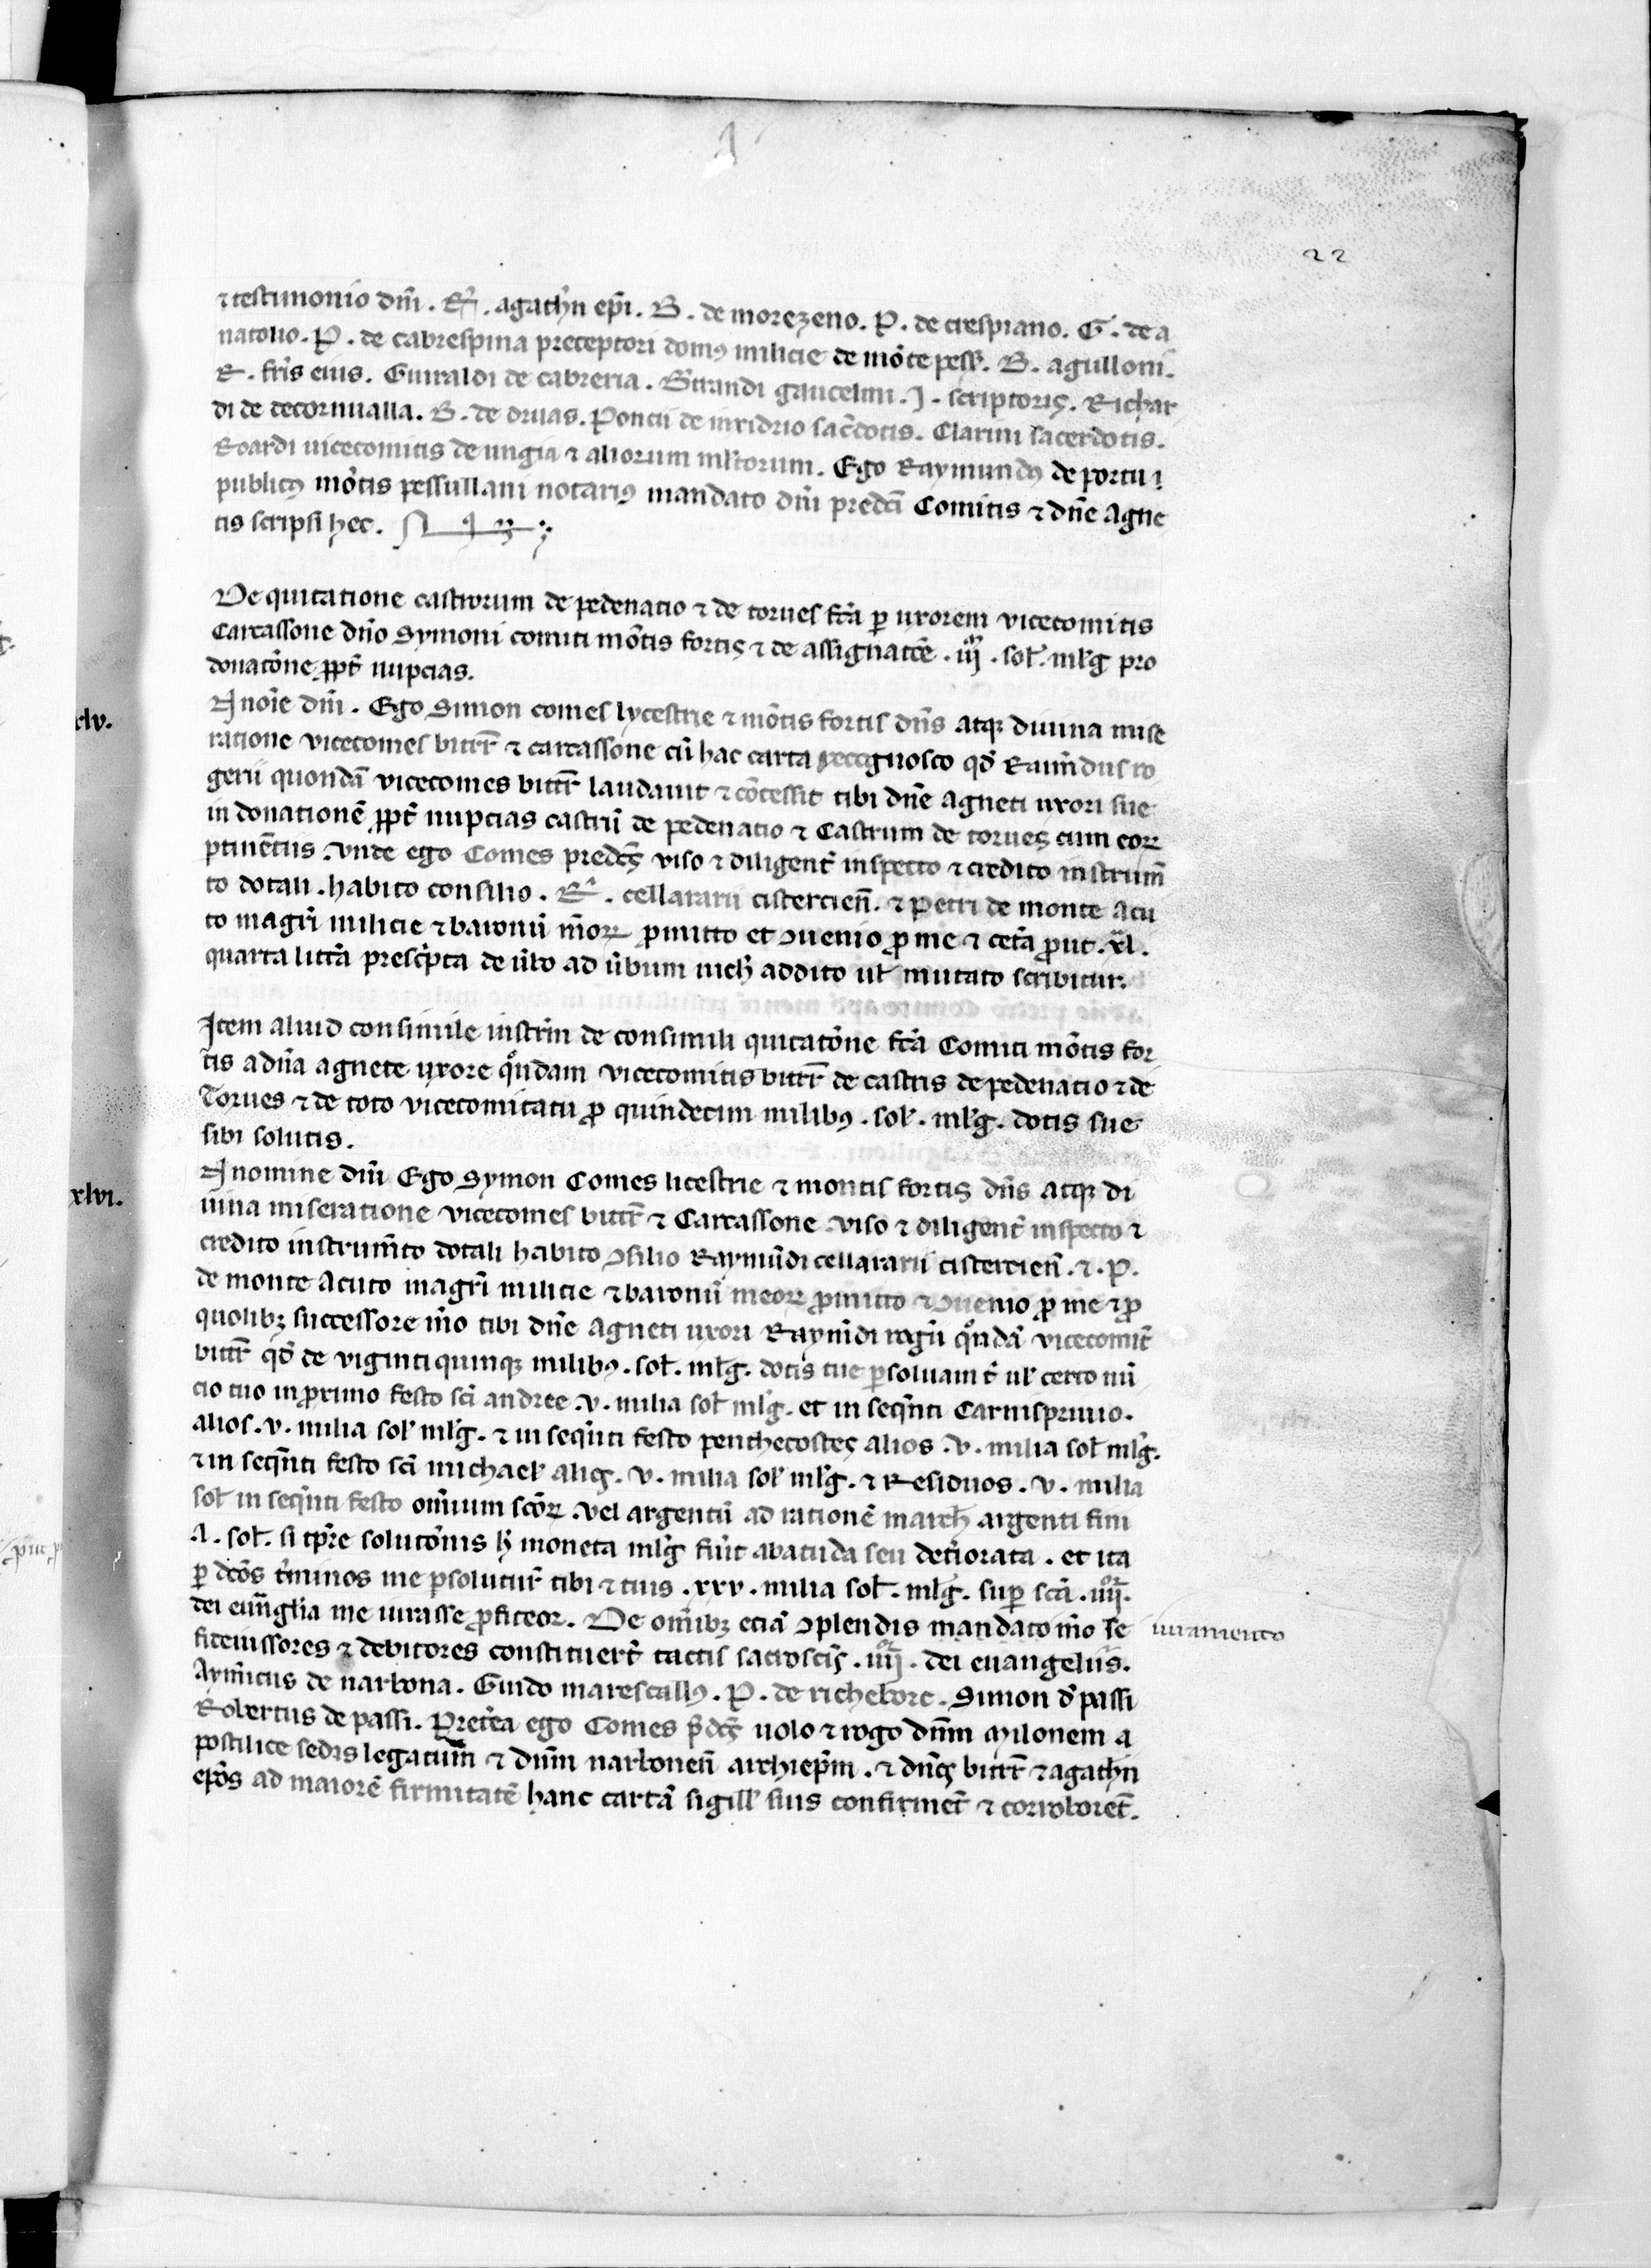 22
⁊ testimonio dñi. R̃. agath̃n ep̃i. B. de morezeno. P. de crespiano. G. de a
natolio. P. de cabrespina preceptori domꝰ milicie de mõte pess̃. B. agulloni.
R. fr̃is eius. Guiraldi de cabreria. B̃trandi gaucelmi. J. scriptoris. Richar
di de cecornualla. B. de druas. Poncii de inridrio sac̃dotis. Clarini sacerdotis.
Roardi uicecomitis de ungia ⁊ aliorum ml̃torum. Ego Raymundꝰ de portu
publicꝰ mõtis pessullani notariꝰ mandato dñi predc̃i Comitis ⁊ dñe Agne
tis scripsi hec.
De quitatione castrorum de pedenatio ⁊ de torues fc̃a ꝑ uxorem vicecomitis
Carcassone dño Symoni comiti mõtis fortis ⁊ de assignatc̃e . iijᵐ. sol̃. ml̃g pro
donatõne ꝓpt̃ nupcias.
xlv.
A noĩe dñi. Ego Simon comes lycestrie ⁊ mõtis fortis dñs atqꝫ diuina mise
ratione vicecomes bitt̃r ⁊ carcassone cũ hac carta recognosco qđ Raim̃dus ro
gerii quondã vicecomes bitt̃r laudauit ⁊ cõcessit tibi dñe Agneti uxori sue
in donationẽ ꝓpt̃ nupcias castrũ de pedenatio ⁊ Castrum de torues cum eoꝝ
ꝑtinẽtiis. Vnde ego Comes predc̃s viso ⁊ diligent̃ inspecto ⁊ credito instrum̃
to dotali. habito consilio. R̃. cellararii cistercieñ. ⁊ Petri de monte Acu
to magr̃i milicie ⁊ baronũ m̃oꝝ ꝓmitto et ꝯuenio ꝓ me ⁊ cet̃a ꝓut. xl.
quarta litt̃a presc̃pta de ũbo ad ũbum nich̃ addito ul̃ mutato scribitur.
Item aliud consimile instrm̃ de consimili quitatõne fc̃a Comiti mõtis for
tis a dñа agnete uxore qͦndam vicecomitis bitt̃r de castris de pedenatio ⁊ de
Torues ⁊ de toto vicecomitatu ꝓ quindecim milibꝰ. sol̃. ml̃g. dotis sue
sibi solutis.
xlvi.
A nomine dñi Ego Symon Comes licestrie ⁊ montis fortis dñs atqꝫ di
uina miseratione vicecomes bitt̃r ⁊ Carcassone viso ⁊ diligent̃ inspecto ⁊
credito instrum̃to dotali habito ꝯsilio Raymũdi cellararii cistercieñ. ⁊. P.
de monte Acuto magr̃i milicie ⁊ baronũ meoꝝ ꝓmitto ⁊ ꝯuenio ꝓ me ⁊ ꝓ
quolibꝫ successore m̃o tibi dñe Agneti uxori Raym̃di rogũ qͦndã vicecomit̃
bitt̃r qđ de viginti quinqꝫ milibꝰ. sol̃. ml̃g. dotis tue ꝑsoluam t̃ ul̃ certo nũ
cio tuo in ꝓximo festo sc̃i andree. v. milia sol̃ ml̃g. et in seq̃nti Carnispriuio.
alios. v. milia sol̃ ml̃g. ⁊ in seq̃nti festo penthecostes alios. v. milia sol̃ ml̃g.
⁊ in seq̃nti festo sc̃i michael̃ alios. v. milia sol̃ ml̃g. ⁊ Residuos. v. milia
sol̃ in seq̃nti festo om̃ium sc̃oꝝ. vel argentũ ad rationẽ march̃ argenti fini
.l. sol̃. si tp̃re solutõnis h̃ moneta ml̃g fũit abatuda seu det̃iorata. et ita
ꝑ dc̃os t̃minos me ꝑsolutur̃ tibi ⁊ tuis. xxv. milia sol̃. ml̃g. suꝑ sc̃a. iiijᵒʳ.
dei euũglia me iurasse ꝓfiteor. De om̃ibꝫ eciã ꝯplendis mandato m̃o se iuramento
fideiussores ⁊ debitores constituerũt tactis sacrosc̃is. iiijᵒʳ. dei euangeliis.
Aym̃icus de narbona. Guido marescallꝰ. P. de richeborc. Simon đ passi
Robertus de passi. Pret̃ea ego Comes p̃dc̃s uolo ⁊ rogo dñm Milonem a
postilice sedis legatum̃ ⁊ dñm narboneñ archiep̃m. ⁊ dños bitt̃r ⁊ agath̃n
ep̃os ad maiorẽ firmitatẽ hanc cartã sigill̃ suis confirmet̃ ⁊ corroboret̃.